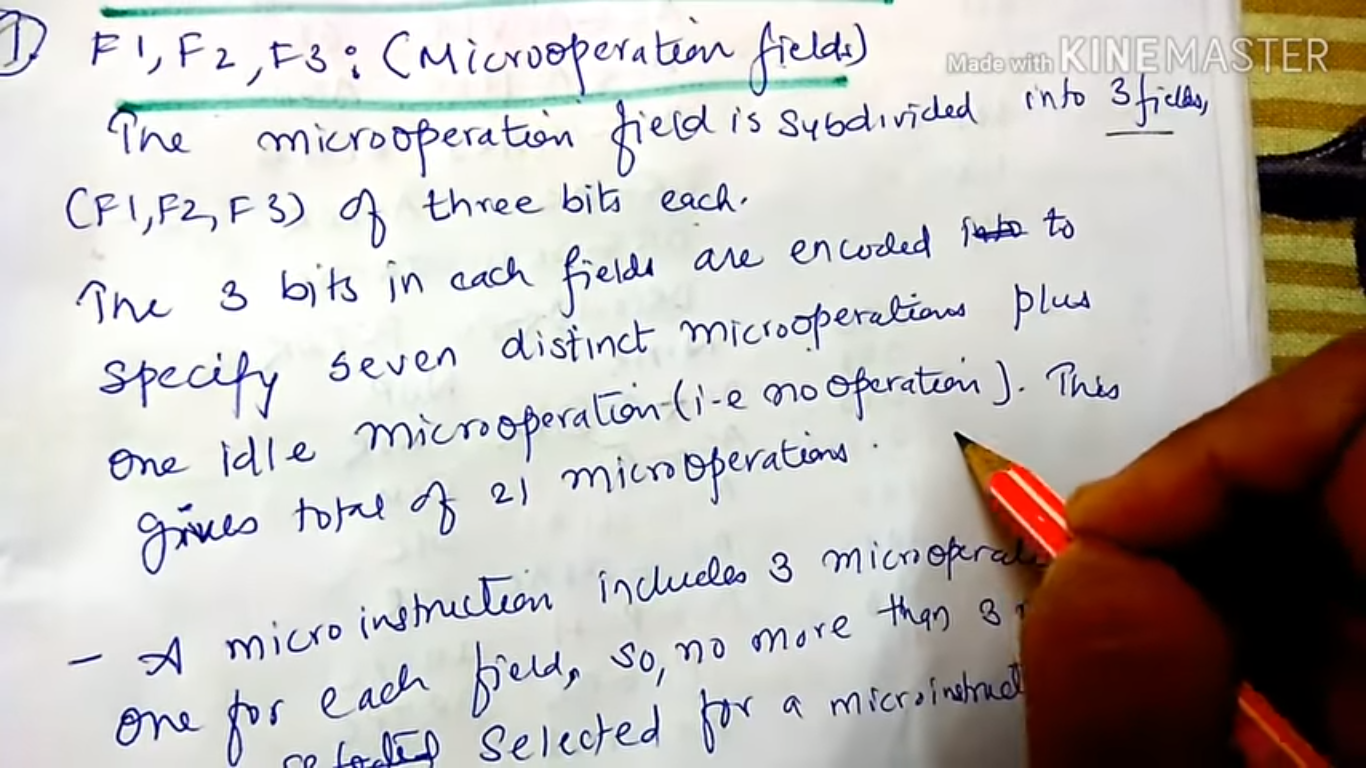 Made with KINEMASTER
① F1, F2, F3: (Microoperation fields)
The microoperation field is subdivided into 3 fields,
(F1, F2, F3) of three bits each.
The 3 bits in each fields are encoded to
specify seven distinct microoperations plus
one idle microoperation (i-e no operation). This
gives total of 21 microoperations.
- A microinstruction includes 3
one for each field, so, no more than 3
selected for a